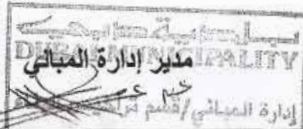 بلدية دبي
DUBAI MUNICIPALITY
مدير إدارة المباني
إدارة المباني/قسم